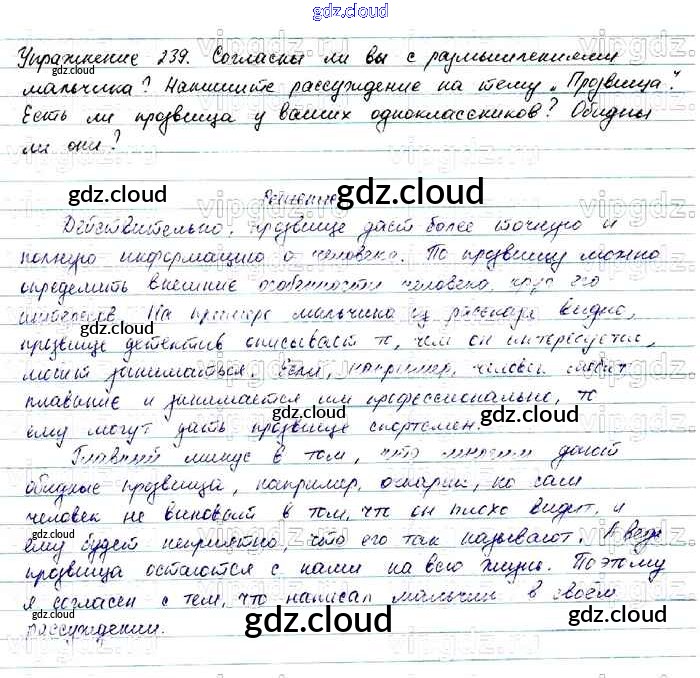 gdz.cloud
Упражнение 239. Согласны ли вы с размышлениями
мальчика? Напишите рассуждение на тему „Прозвища“.
Есть ли прозвища у ваших одноклассников? Обидны
ли они?
Решение
Действительно, прозвище даст более точную и
полную информацию о человеке. По прозвищу можно
определить внешние особенности человека, круг его
интересов. На примере мальчика из рассказа видно,
прозвище детектив описывает то, чем он интересуется,
может заниматься. Если, например, человек любит
плавание и занимается им профессионально, то
ему могут дать прозвище спортсмен.
Главный минус в том, что многим дают
обидные прозвища, например, очкарик, но сам
человек не виноват в том, что он плохо видит, и
ему будет неприятно, что его так называют. А ведь
прозвища остаются с нами на всю жизнь. Поэтому
я согласен с тем, что написал мальчик в своём
рассуждении.
gdz.cloud